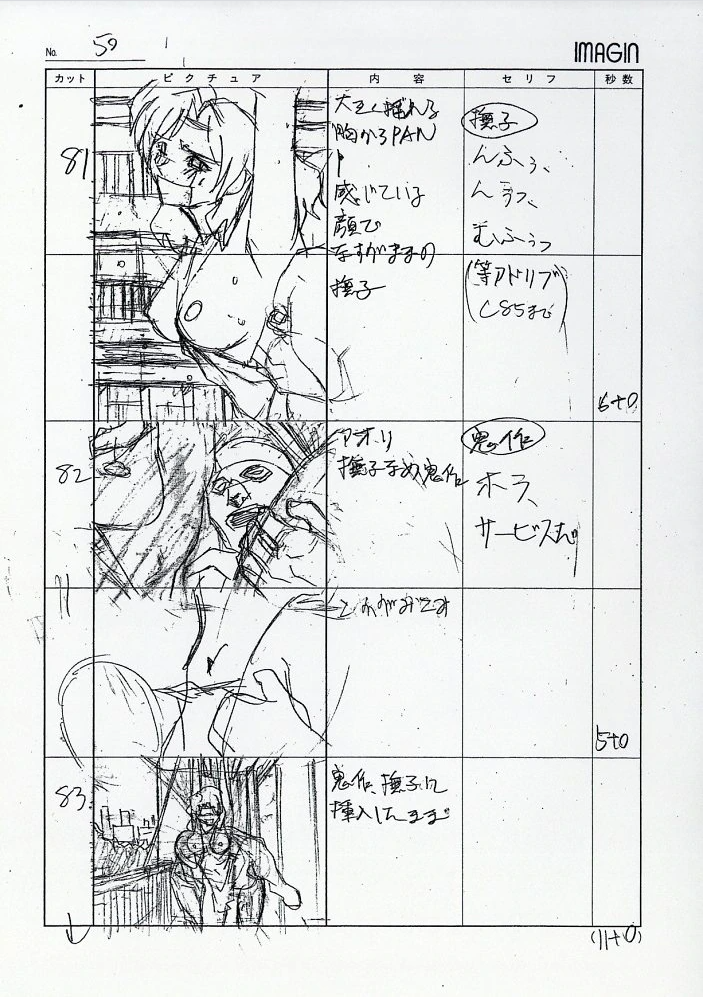 No. 59
IMAGIN
カット ピクチュア 内容 セリフ 秒数
81
大きく揺れる
胸からPAN
感じている
顔で
なすがままの
撫子
撫子
んふぅ、
んうっ、
むふぅっ
(等アドリブ
C85まで)
6+0
82
アオリ
撫子なめ鬼作
鬼作
ホラ、
サービスだ
5+0
83
鬼作、撫子に
挿入したまま
(11+0)